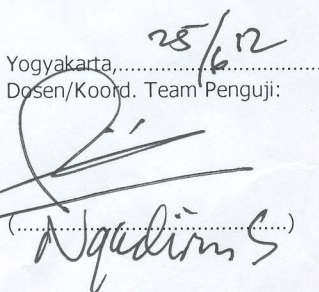 Yogyakarta,..25/6 12..........
Dosen/Koord. Team Penguji:
(..............................)
Ngadirin S